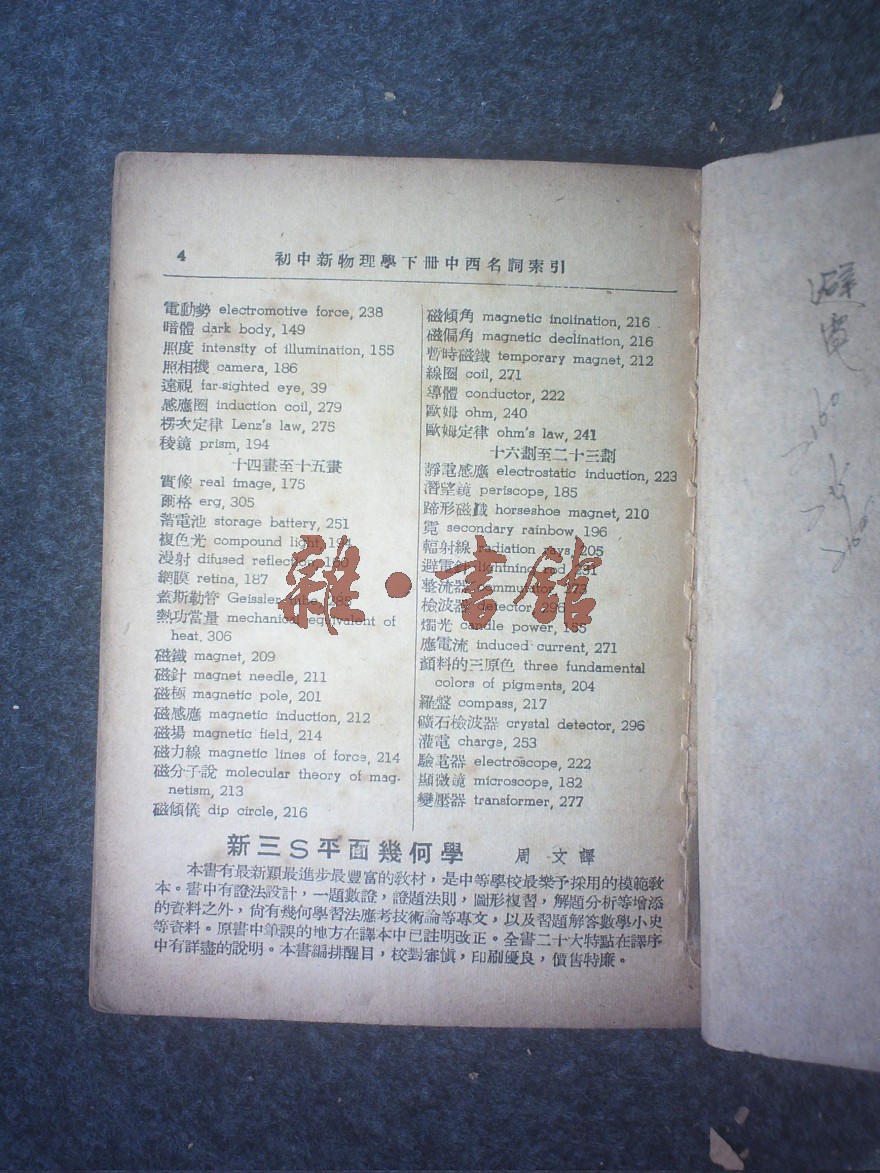 4 初中新物理學下冊中西名詞索引
電動勢 electromotive force, 238
暗體 dark body, 149
照度 intensity of illumination, 155
照相機 camera, 186
遠視 far-sighted eye, 39
感應圈 induction coil, 279
楞次定律 Lenz's law, 275
稜鏡 prism, 194
十四畫至十五畫
實像 real image, 175
爾格 erg, 305
蓄電池 storage battery, 251
複色光 compound light, 194
漫射 difused reflection, 160
網膜 retina, 187
蓋斯勒管 Geissler tube,
熱功當量 mechanical equivalent of
heat, 306
磁鐵 magnet, 209
磁針 magnet needle, 211
磁極 magnetic pole, 201
磁感應 magnetic induction, 212
磁場 magnetic field, 214
磁力線 magnetic lines of force, 214
磁分子說 molecular theory of mag-
netism, 213
磁傾儀 dip circle, 216
磁傾角 magnetic inclination, 216
磁偏角 magnetic declination, 216
暫時磁鐵 temporary magnet, 212
線圈 coil, 271
導體 conductor, 222
歐姆 ohm, 240
歐姆定律 ohm's law, 241
十六劃至二十三劃
靜電感應 electrostatic induction, 223
潛望鏡 periscope, 185
蹄形磁鐵 horseshoe magnet, 210
霓 secondary rainbow, 196
輻射線 radiation rays, 205
避電針 lightning rod, 231
整流器 commutator, 273
檢波器 detector, 296
燭光 candle power, 155
應電流 induced current, 271
顏料的三原色 three fundamental
colors of pigments, 204
羅盤 compass, 217
礦石檢波器 crystal detector, 296
灌電 charge, 253
驗電器 electroscope, 222
顯微鏡 microscope, 182
變壓器 transformer, 277
新三S平面幾何學 周文譯
本書有最新穎最進步最豐富的教材，是中等學校最樂予採用的模範教
本。書中有證法設計，一題數證，證題法則，圖形複習，解題分析等增添
的資料之外，尙有幾何學習法應考技術論等專文，以及習題解答數學小史
等資料。原書中筆誤的地方在譯本中已註明改正。全書二十大特點在譯序
中有詳盡的說明。本書編排醒目，校對審慎，印刷優良，價售特廉。
雜·書館
避電